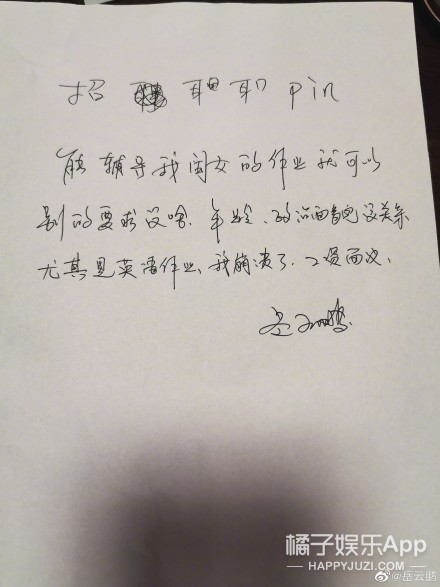 招 pin
能辅导我闺女的作业就可以
别的要求没啥、年龄、政治面貌没关系
尤其是英语作业、我崩溃了、工资面议、
岳云鹏
橘子娱乐App
HAPPYJUZI.COM
@岳云鹏